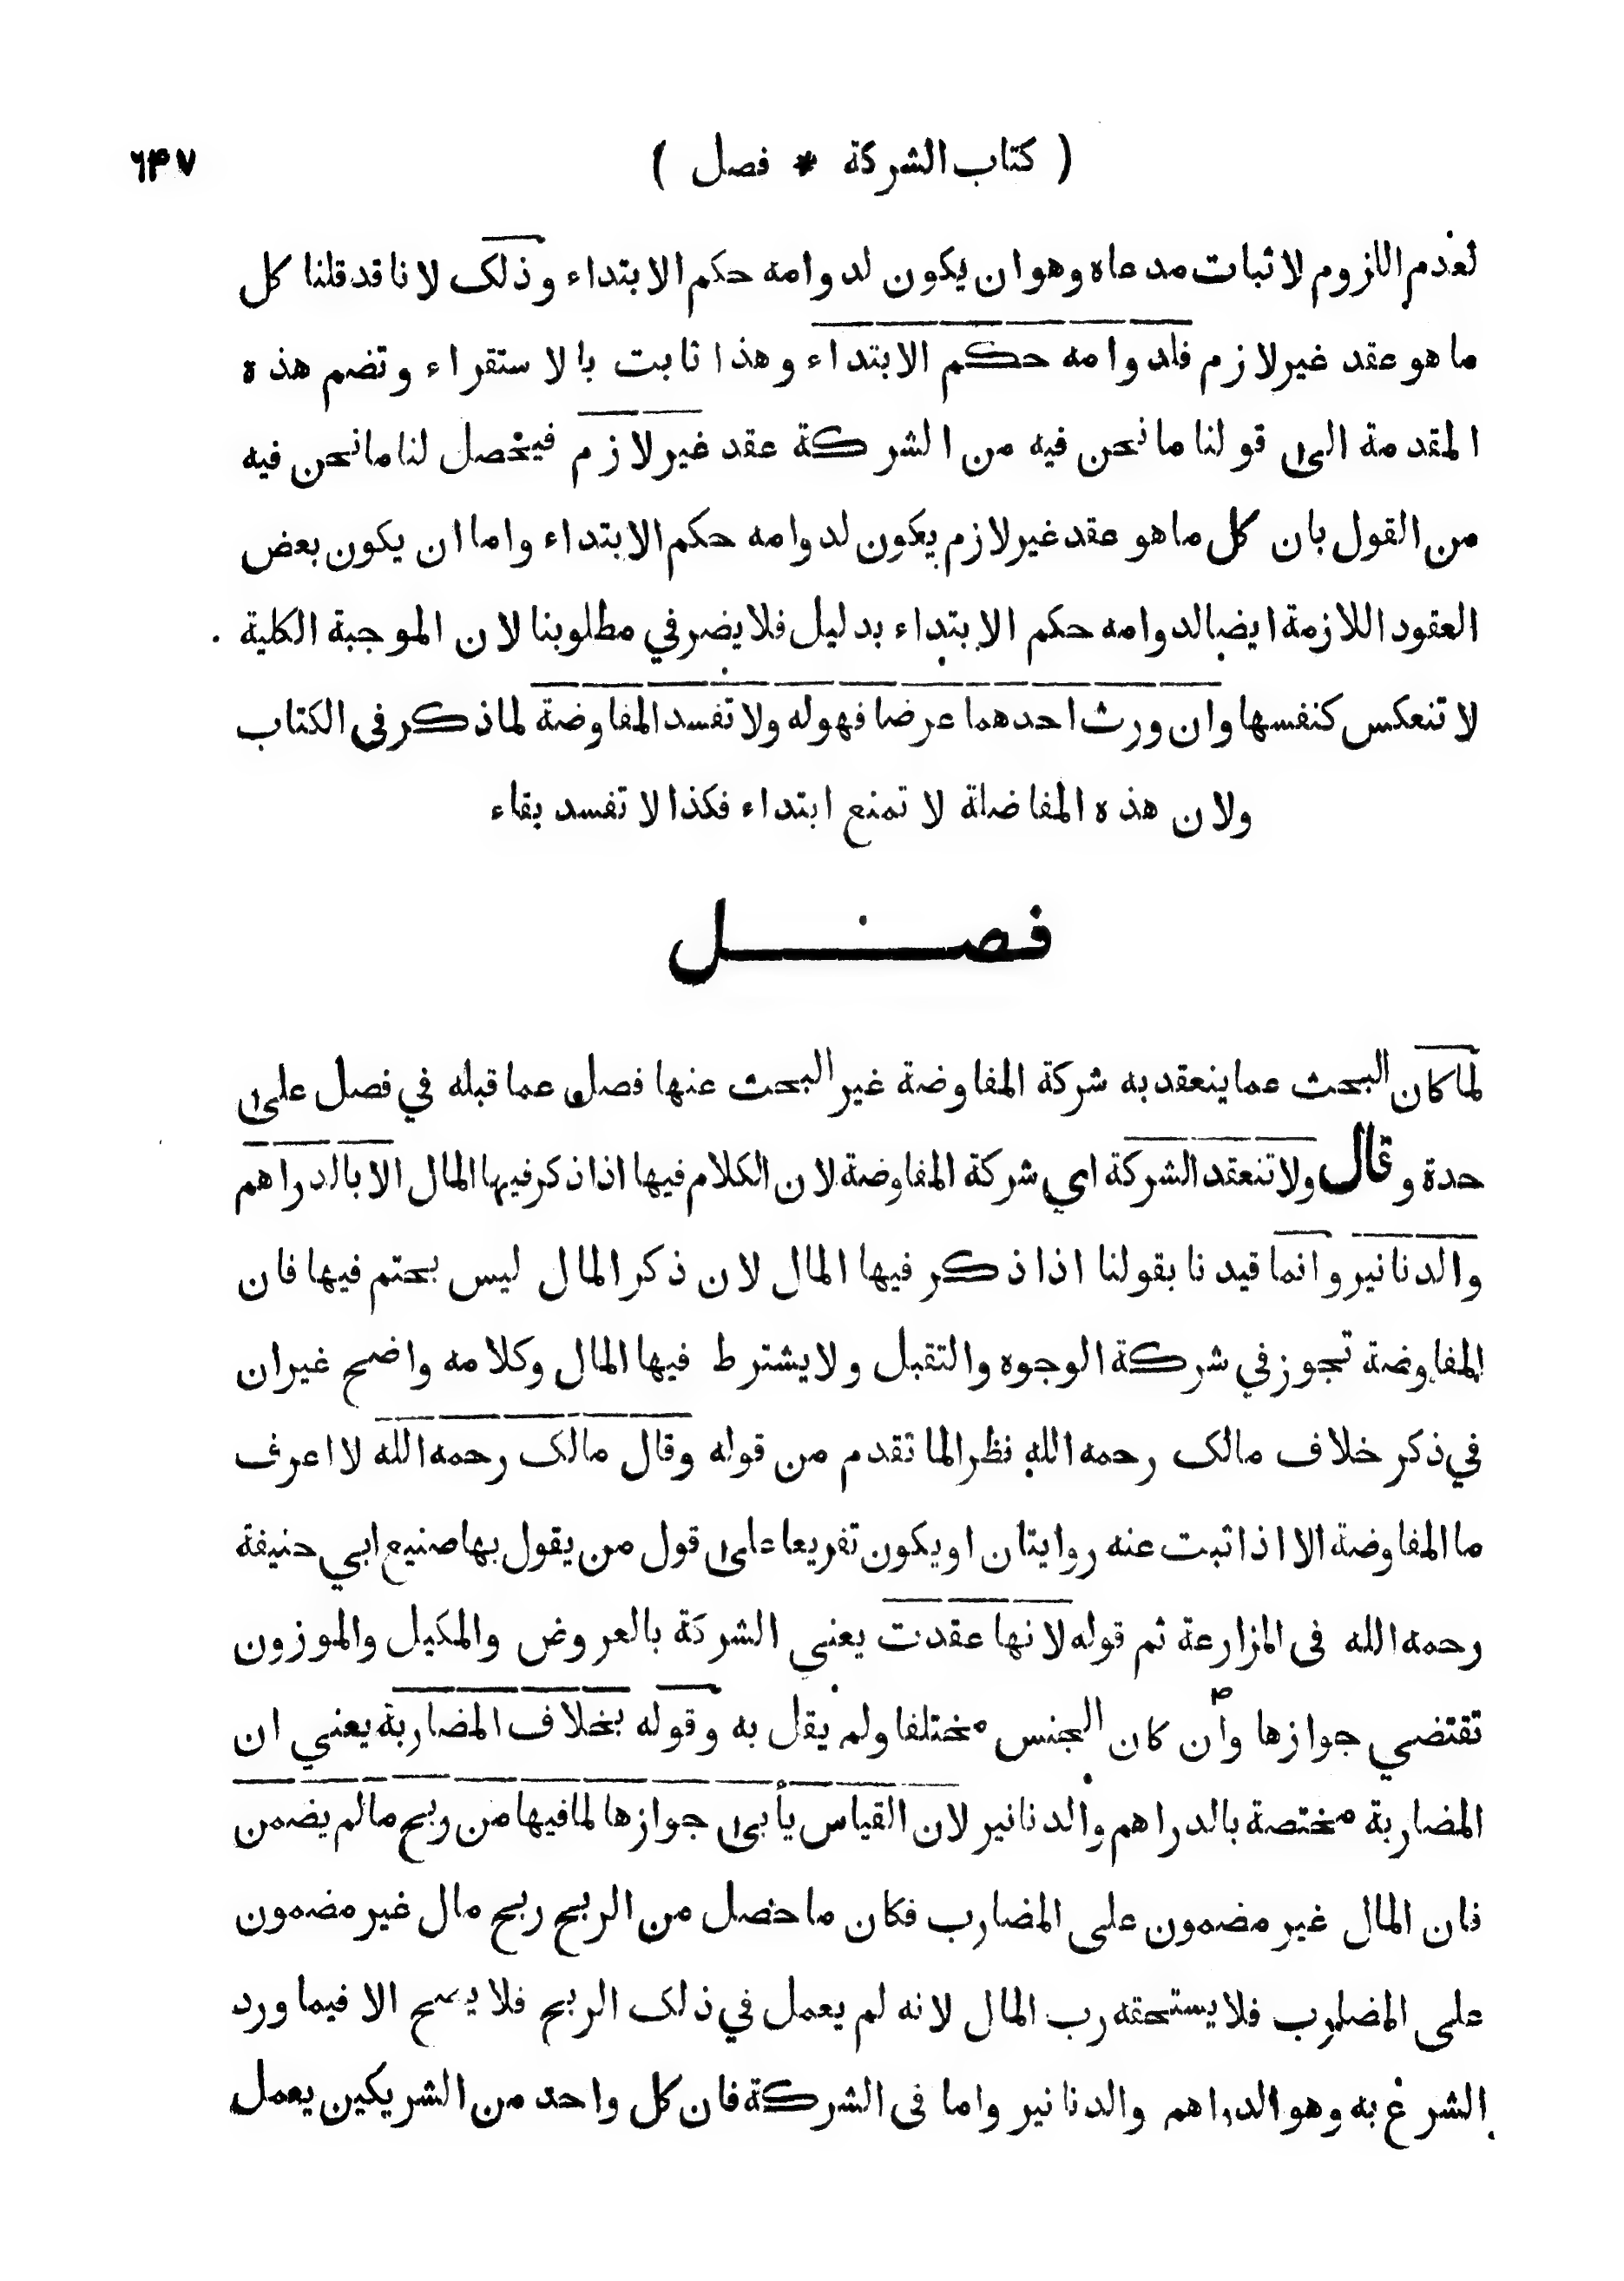 ( كتاب الشركة * فصل ) ٦٤٧
لعدم اللزوم لاثبات مدعاه وهو ان يكون لدوامه حكم الابتداء وذلك لانا قد قلنا كل
ما هو عقد غير لازم فلدوامه حكم الابتداء وهذا ثابت بالاستقراء وتضم هذه
المقدمة الى قولنا ما نحن فيه من الشركة عقد غير لازم فيحصل لنا ما نحن فيه
من القول بان كل ما هو عقد غير لازم يكون لدوامه حكم الابتداء واما ان يكون بعض
العقود اللازمة ايضا لدوامه حكم الابتداء بدليل فلا يضر في مطلوبنا لان الموجبة الكلية
لا تنعكس كنفسها وان ورث احدهما عرضا فهوله ولا تفسد المفاوضة لما ذكر فى الكتاب
ولان هذه المفاضلة لا تمنع ابتداء فكذا لا تفسد بقاء
فصل
لما كان البحث عما ينعقد به شركة المفاوضة غير البحث عنها فصل عما قبله في فصل على
حدة وقال ولا تنعقد الشركة اي شركة المفاوضة لان الكلام فيها اذا ذكر فيها المال الا بالدراهم
والدنانير وانما قيدنا بقولنا اذا ذكر فيها المال لان ذكر المال ليس بحتم فيها فان
المفاوضة تجوز في شركة الوجوه والتقبل ولا يشترط فيها المال وكلامه واضح غير ان
في ذكر خلاف مالك رحمه الله نظرا لما تقدم من قوله وقال مالك رحمه الله لا اعرف
ما المفاوضة الا اذا ثبت عنه روايتان او يكون تفريعا على قول من يقول بها صنيع ابي حنيفة
رحمه الله فى المزارعة ثم قوله لانها عقدت يعني الشركة بالعروض والمكيل والموزون
تقتضي جوازها وأن كان الجنس مختلفا ولم يقل به وقوله بخلاف المضاربة يعني ان
المضاربة مختصة بالدراهم والدنانير لان القياس يأبى جوازها لما فيها من ربح مالم يضمن
فان المال غير مضمون على المضارب فكان ما حصل من الربح ربح مال غير مضمون
على المضارب فلا يستحقه رب المال لانه لم يعمل في ذلك الربح فلا يصح الا فيما ورد
الشرع به وهو الدراهم والدنانير واما فى الشركة فان كل واحد من الشريكين يعمل